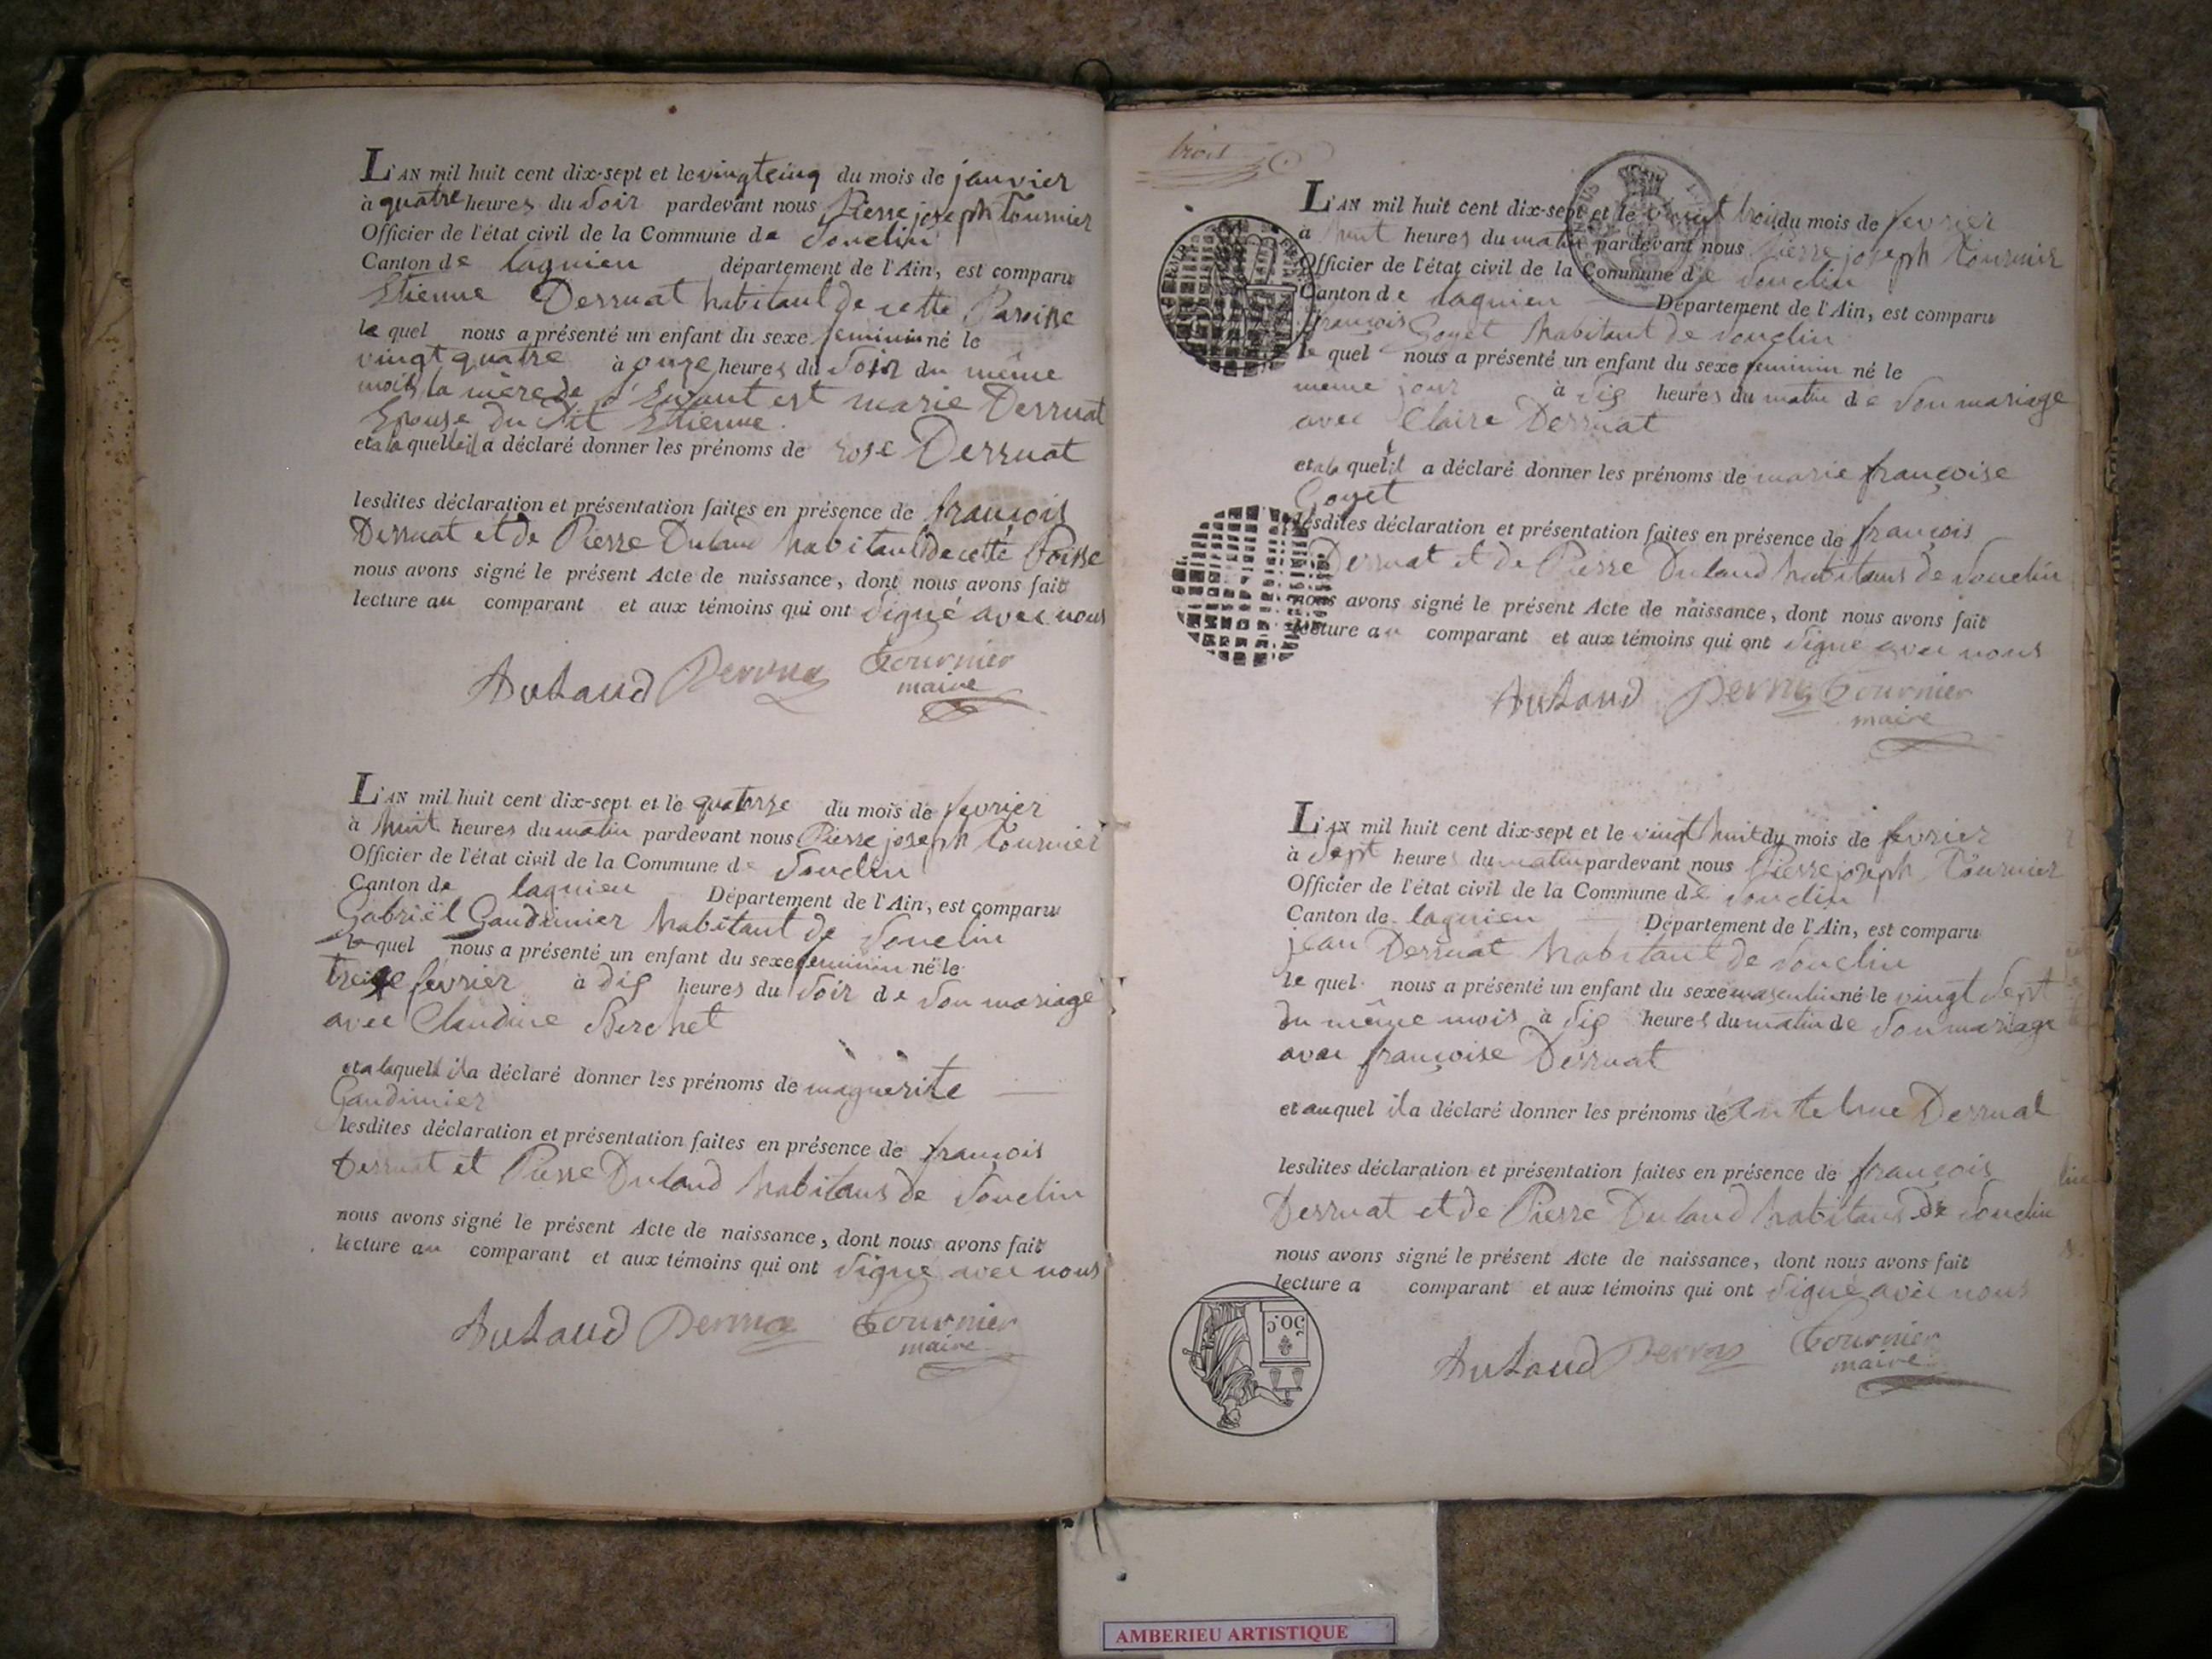 L'AN mil huit cent dix-sept et le vingt cinq du mois de janvier
à quatre heures du soir pardevant nous Pierre joseph Tournier
Officier de l'état civil de la Commune de Souclin
Canton de lagnieu département de l'Ain, est comparu
Etienne Derruat habitant de cette Paroisse
le quel nous a présenté un enfant du sexe feminin né le
vingt quatre à onze heures du soir du même
mois la mère de l'enfant est marie Derruat
Epouse du dit Etienne.
et a la quelle il a déclaré donner les prénoms de rose Derruat
lesdites déclaration et présentation faites en présence de françois
Derruat et de Pierre Dulaud habitant de cette Poisse
nous avons signé le présent Acte de naissance, dont nous avons fait
lecture au comparant et aux témoins qui ont signé avec nous
Dulaud Derrua Tournier
maire
L'AN mil huit cent dix-sept et le quatorze du mois de fevrier
à huit heures du matin pardevant nous Pierre joseph Tournier
Officier de l'état civil de la Commune de Souclin
Canton de lagnieu Département de l'Ain, est comparu
Gabriël Gaudimier habitant de Souclin
le quel nous a présenté un enfant du sexe feminin né le
treize fevrier à dis heures du soir de son mariage
avec Claudine Berchet
et a laquell il a déclaré donner les prénoms de maguerite
Gaudimier
lesdites déclaration et présentation faites en présence de françois
Derruat et Pierre Dulaud habitans de Souclin
nous avons signé le présent Acte de naissance, dont nous avons fait
lecture au comparant et aux témoins qui ont signé avec nous
Dulaud Derrua Tournier
maire
trois
L'AN mil huit cent dix-sept et le vingt trois du mois de fevrier
à huit heures du matin pardevant nous Pierre joseph Tournier
Officier de l'état civil de la Commune de Souclin
Canton de lagnieu Département de l'Ain, est comparu
françois Goyet habitant de Souclin
le quel nous a présenté un enfant du sexe feminin né le
même jour à dis heures du matin de son mariage
avec Claire Derruat
et a la quel il a déclaré donner les prénoms de marie françoise
Goyet
lesdites déclaration et présentation faites en présence de françois
Derruat et de Pierre Dulaud habitans de Souclin
nous avons signé le présent Acte de naissance, dont nous avons fait
lecture au comparant et aux témoins qui ont signé avec nous
Dulaud Derrua Tournier
maire
L'AN mil huit cent dix-sept et le vingt huit du mois de fevrier
à sept heures du matin pardevant nous Pierre joseph Tournier
Officier de l'état civil de la Commune de Souclin
Canton de lagnieu Département de l'Ain, est comparu
jean Derruat habitant de Souclin
le quel nous a présenté un enfant du sexe masculin né le vingt sept
du même mois à dis heures du matin de son mariage
avec françoise Derruat
et au quel il a déclaré donner les prénoms de Antelme Derruat
lesdites déclaration et présentation faites en présence de françois
Derruat et de Pierre Dulaud habitans de Souclin
nous avons signé le présent Acte de naissance, dont nous avons fait
lecture a comparant et aux témoins qui ont signé avec nous
50 c.
Dulaud Derrua Tournier
maire
AMBERIEU ARTISTIQUE